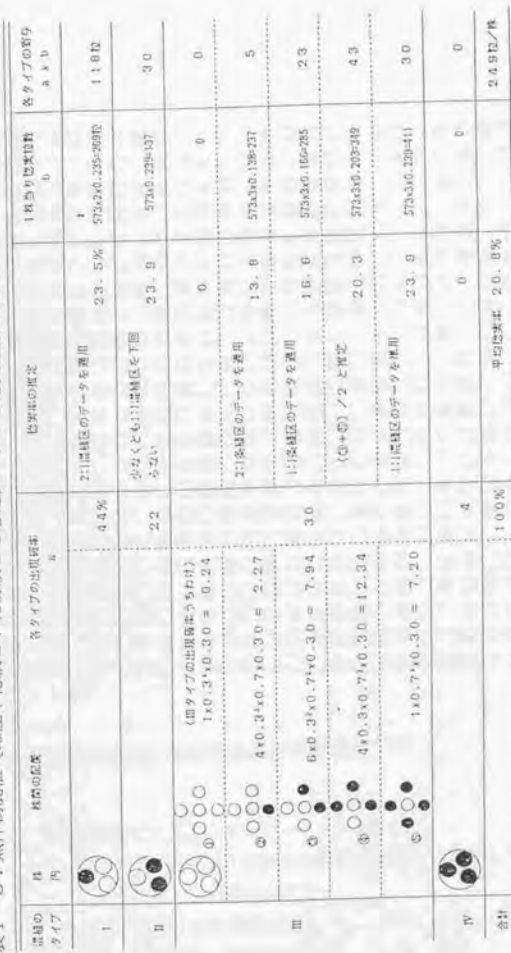 混植の
タイプ
株 内
株間の配置
各タイプの出現確率
a
稔実率の推定
1株当り稔実粒数
b
各タイプの寄与
a x b
I
44%
2:1混植区のデータを適用
23.5%
573x2x0.235=269粒
118粒
II
22
少なくとも1:1混植区を下回
らない
23.9
573x0.239=137
30
III
30
(III タイプの出現確率うちわけ)
①
1x0.3⁴x0.30 = 0.24
0
0
0
②
4x0.3³x0.7x0.30 = 2.27
2:1条植区のデータを適用
13.8
573x3x0.138=237
5
③
6x0.3²x0.7²x0.30 = 7.94
1:1条植区のデータを適用
16.6
573x3x0.166=285
23
④
4x0.3x0.7³x0.30 =12.34
(③+⑤)/2 と推定
20.3
573x3x0.203=349
43
⑤
1x0.7⁴x0.30 = 7.20
1:1混植区のデータを準用
23.9
573x3x0.239=411
30
IV
4
0
0
0
合計
100%
平均稔実率 20.8%
249粒/株